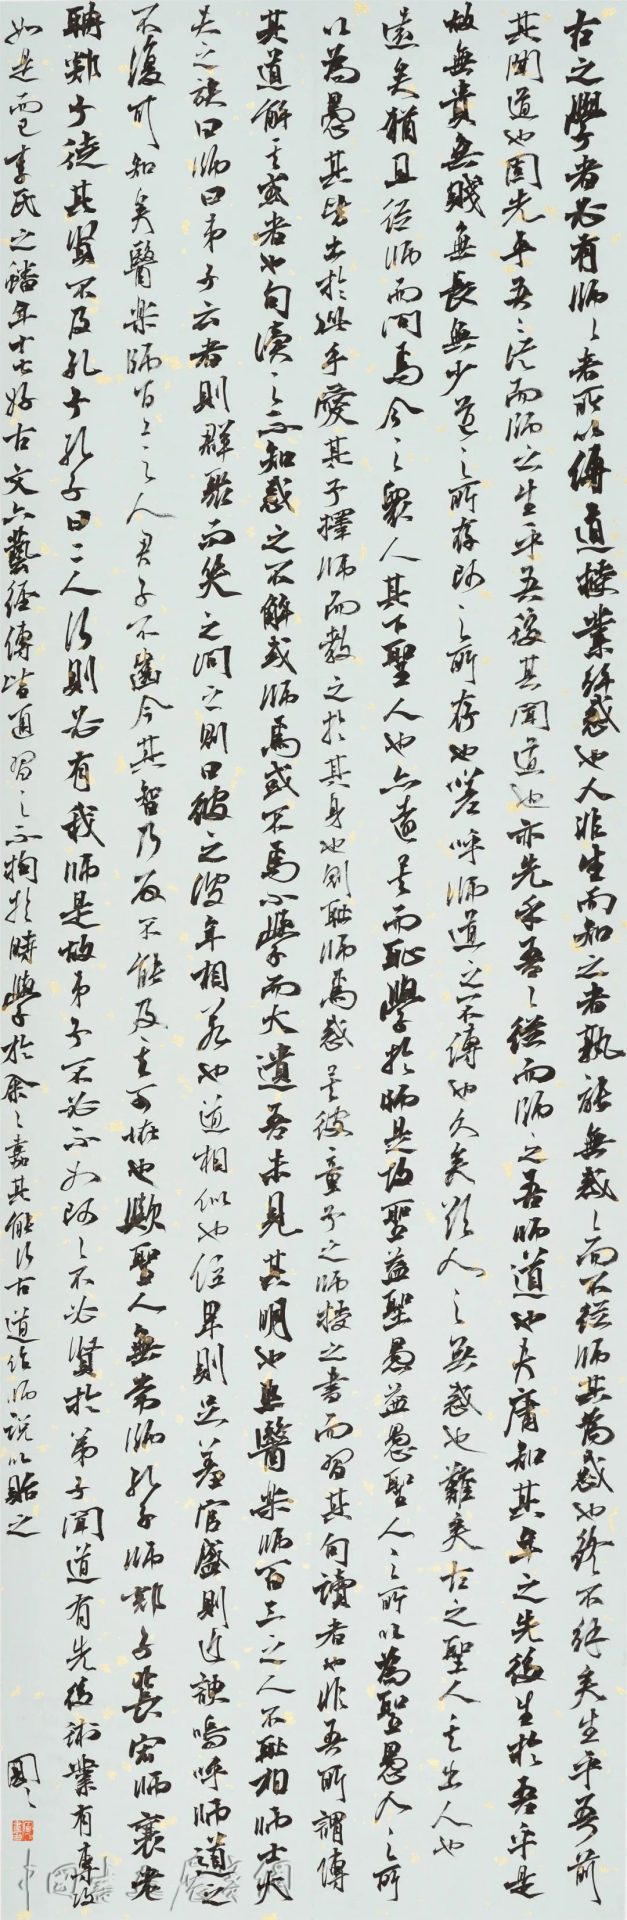 古之學者必有師々者所以傳道授業解惑也人非生而知之者孰能無惑々而不從師其為惑也終不解矣生乎吾前
其聞道也固先乎吾々從而師之生乎吾後其聞道也亦先乎吾々從而師之吾師道也夫庸知其年之先後生於吾乎是
故無貴無賤無長無少道之所存師之所存也嗟呼師道之不傳也久矣欲人之無惑也難矣古之聖人其出人也
遠矣猶且從師而問焉今之眾人其下聖人也亦遠矣而恥學於師是故聖益聖愚益愚聖人之所以為聖愚人之所
以為愚其皆出於此乎愛其子擇師而教之於其身也則恥師焉惑矣彼童子之師授之書而習其句讀者也非吾所謂傳
其道解其惑者也句讀之不知惑之不解或師焉或不焉小學而大遺吾未見其明也巫醫樂師百工之人不恥相師士大
夫之族曰師曰弟子云者則群聚而笑之問之則曰彼之彼年相若也道相似也位卑則足羞官盛則近諛嗚呼師道之
不復可知矣醫樂師百工之人君子不齒今其智乃反不能及其可怪也歟聖人無常師孔子師郯子萇宏師襄老
聃郯子徒其賢不及孔子孔子曰三人行則必有我師是故弟子不必不如師々不必賢於弟子聞道有先後術業有專攻
如是而已李氏之蟠年十七好古文六藝經傳皆通習之不拘於時學於余々嘉其能行古道作師說以貽之